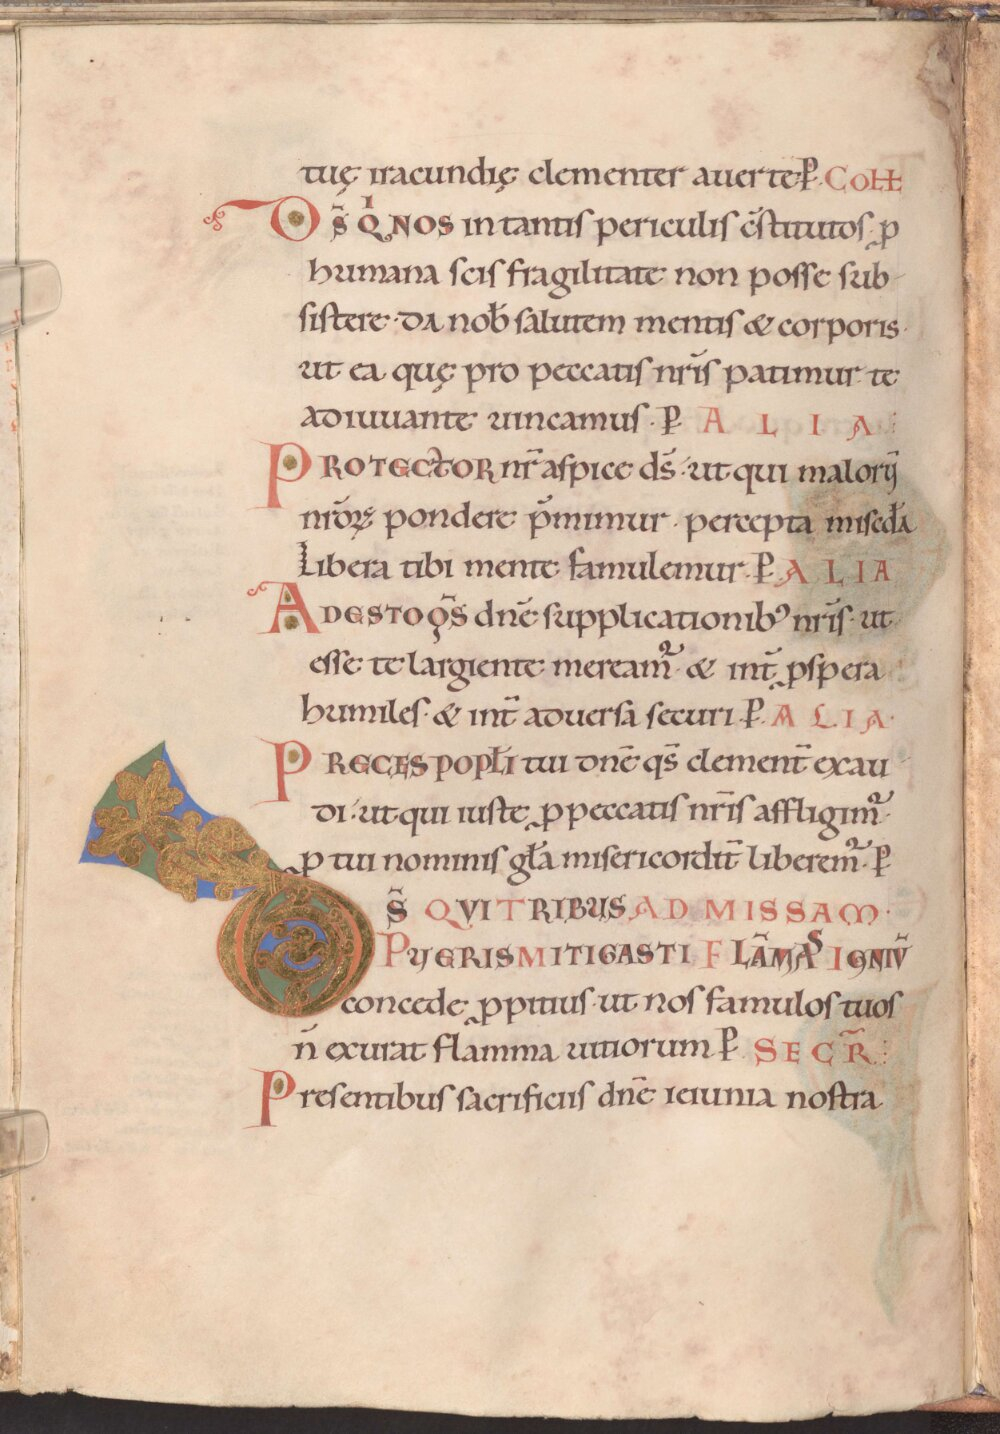 tuę iracundię clementer auerte P̲ COLL̄
D S̄ QI NOS in tantis periculis c̄stitutos ꝓ
humana scis fragilitate non posse sub
sistere · da nob̄ salutem mentis & corporis·
ut ea quę pro peccatis nr̄is patimur te
adiuuante uincamus · P̲ ALIA
PROTECTOR nr̄ aspice ds̄ · ut qui malorū
nr̄oꝝ pondere p̄mimur · percepta misc̄da
Libera tibi mente famulemur · P̲ ALIA
ADESTO QS̄ dnē supplicationibꝰ nr̄is · ut
esse te largiente mereamᷣ · & int̄ ꝓspera
humiles · & int̄ aduersa securi · P̲ ALIA·
PRECES POPŁI tui dnē qs̄ clement̄ exau
di · ut qui iuste ꝓ peccatis nr̄is affligimᷣ·
ꝓ tui nominis gła misericordit̄ liberemᷣ · P̲
D S̄ QVI TRIBUS AD MISSAM·
PUERIS MITIGASTI FLĀMAS IGNIŪ
concede ꝓpitius · ut nos famulos tuos
n̄ exurat flamma uitiorum P̲ SECR̄
Presentibus sacrificiis dnē ieiunia nostra